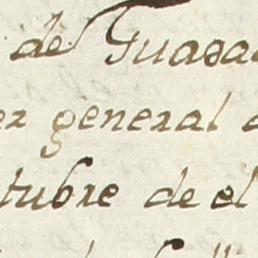 de Guada
er general
tubre de el